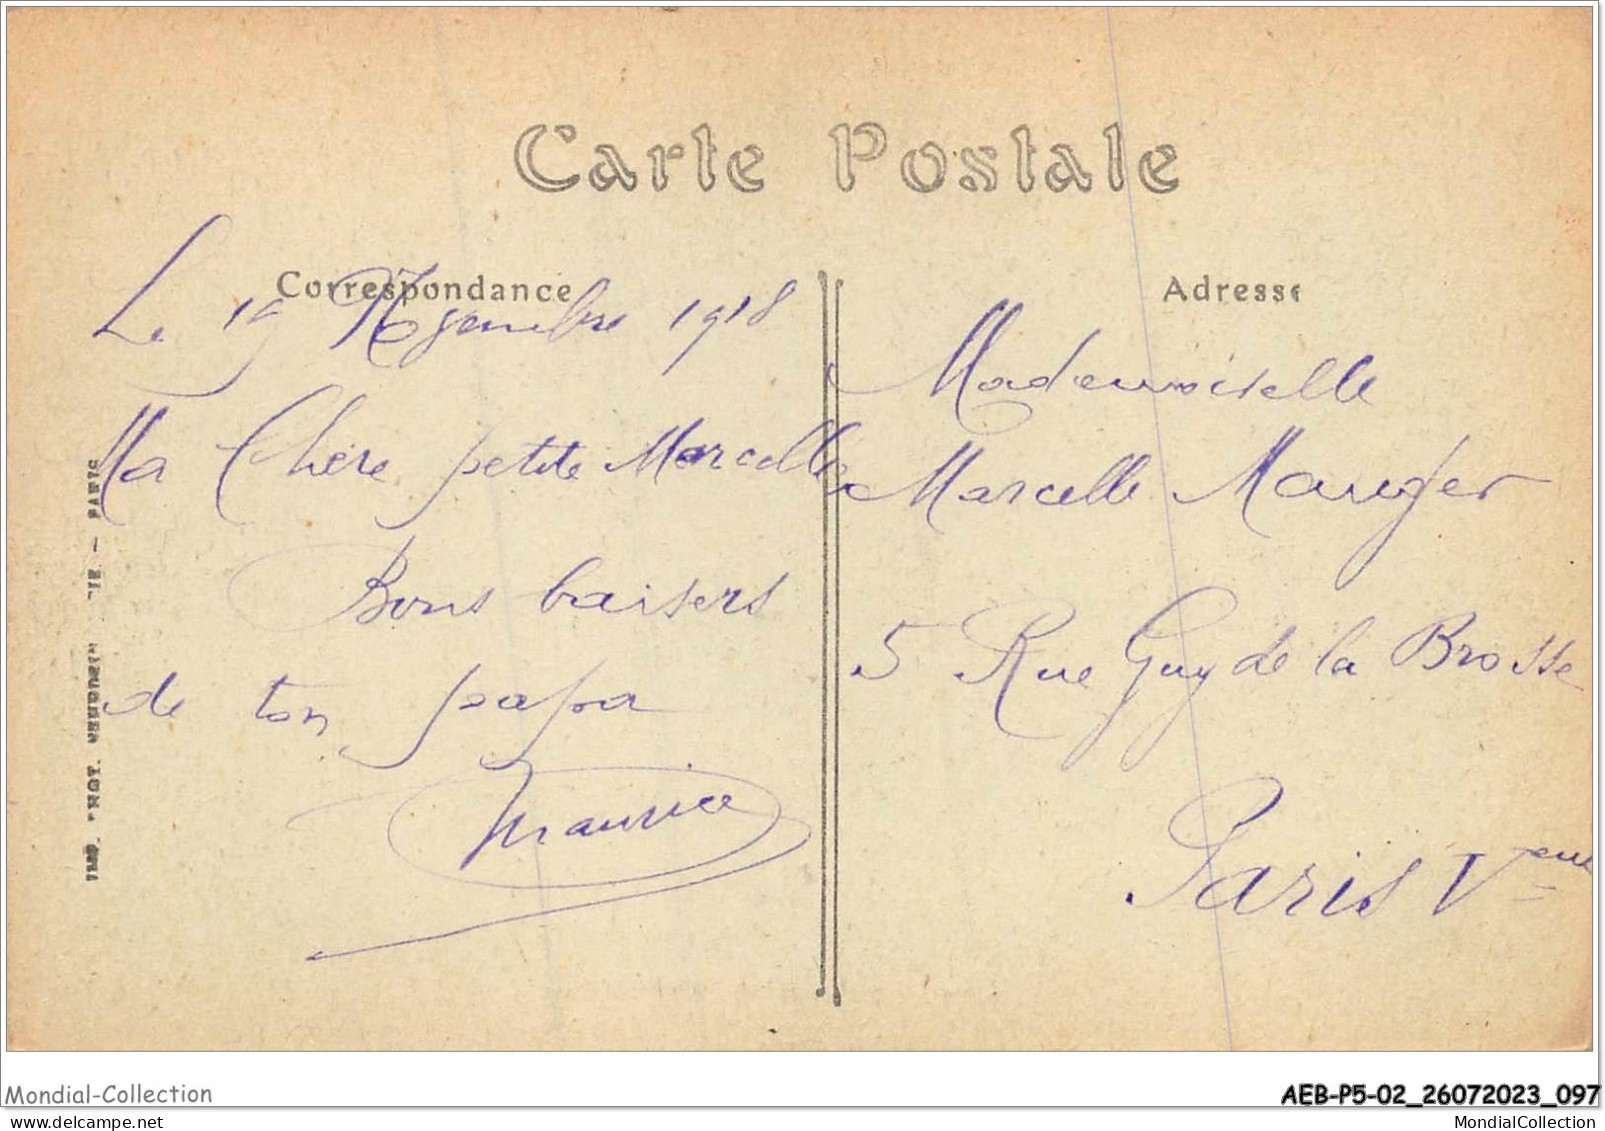 Carte Postale
Correspondance
Le 1918
Ma Chère petite Marcelle
Bons baisers
de ton papa
Maurice
Adresse
Mademoiselle
Marcelle Mauger
5 Rue Guy de la Brosse
Paris Veme
PARIS
IMP. PHOT.
Mondial-Collection
AEB-P5-02_26072023_097
www.delcampe.net
MondialCollection